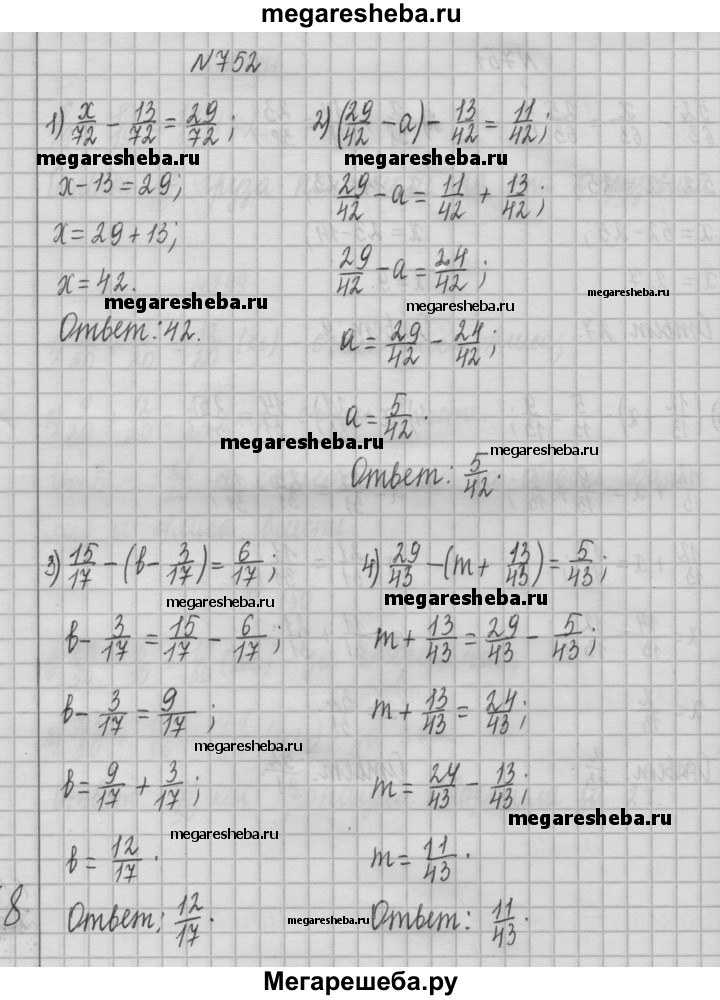 megaresheba.ru
№752
1) x/72 - 13/72 = 29/72;
megaresheba.ru
x - 13 = 29;
x = 29 + 13;
x = 42.
megaresheba.ru
Ответ: 42.
2) (29/42 - a) - 13/42 = 11/42;
megaresheba.ru
29/42 - a = 11/42 + 13/42;
29/42 - a = 24/42;
megaresheba.ru
megaresheba.ru
a = 29/42 - 24/42;
a = 5/42.
megaresheba.ru
megaresheba.ru
Ответ: 5/42.
3) 15/17 - (в - 3/17) = 6/17;
megaresheba.ru
в - 3/17 = 15/17 - 6/17;
в - 3/17 = 9/17;
megaresheba.ru
в = 9/17 + 3/17;
megaresheba.ru
в = 12/17.
Ответ: 12/17.
4) 29/43 - (m + 13/43) = 5/43;
megaresheba.ru
m + 13/43 = 29/43 - 5/43;
m + 13/43 = 24/43;
m = 24/43 - 13/43;
megaresheba.ru
m = 11/43.
megaresheba.ru
Ответ: 11/43.
8
Мегарешеба.ру